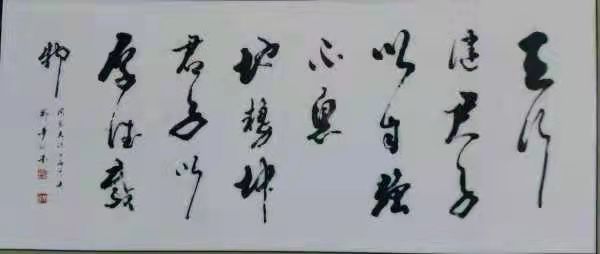 天行
健君子
以自强
不息
地势坤
君子以
厚德載
物